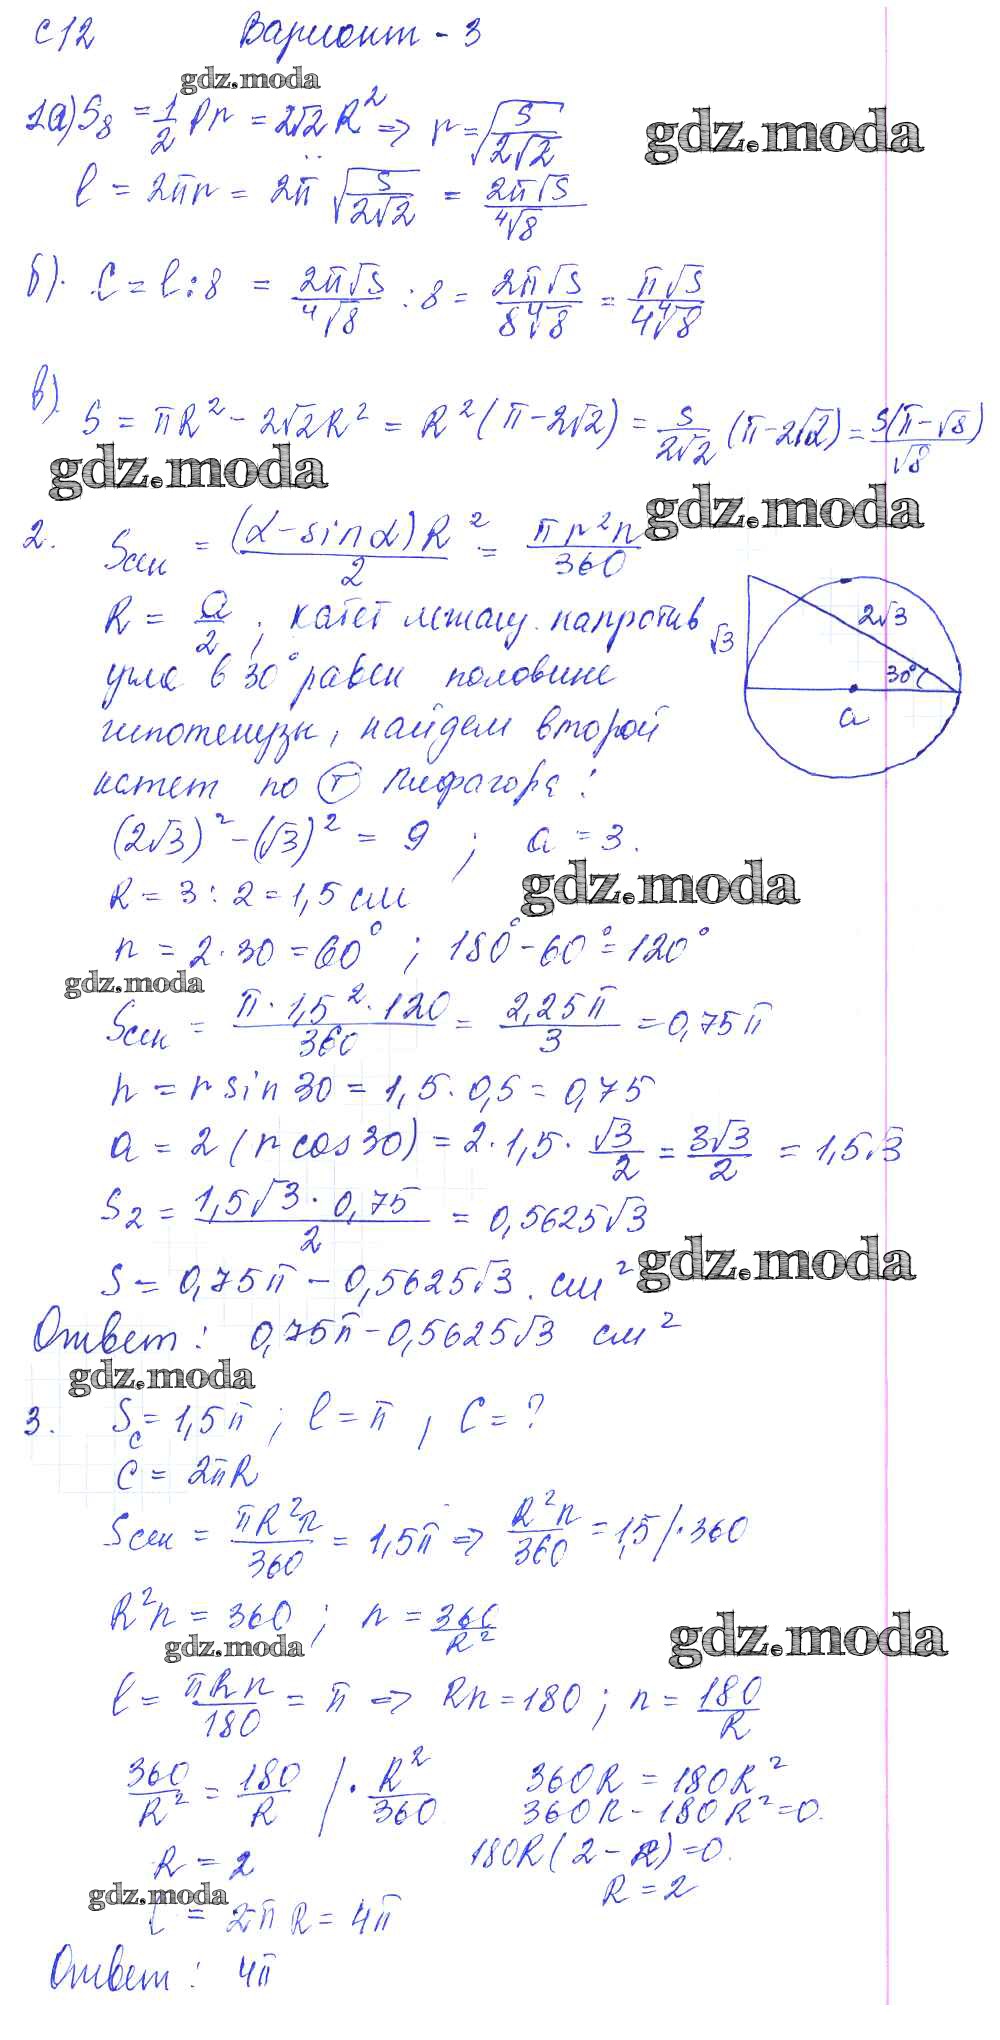 С12 Вариант - 3
gdz.moda
1а) S₈ = 1/2 Pr = 2√2 R² => r = √(S/(2√2))
gdz.moda
l = 2πr = 2π √(S/(2√2)) = 2π√S/⁴√8
б). C = l : 8 = 2π√S/⁴√8 : 8 = 2π√S/8⁴√8 = π√S/4⁴√8
в). S = πR² - 2√2R² = R²(π - 2√2) = S/2√2 (π - 2√2) = S(π - √8)/√8
gdz.moda
gdz.moda
2. Sсек = (α - sinα)R²/2 = πr²n/360
R = a/2 ; катет лежащ. напротив
угла в 30° равен половине
гипотенузы, найдем второй
катет по Т Пифагора:
√3 2√3 30° a
(2√3)² - (√3)² = 9 ; a = 3.
gdz.moda
R = 3 : 2 = 1,5 см
n = 2 · 30 = 60° ; 180° - 60° = 120°
gdz.moda
Sсек = π · 1,5² · 120/360 = 2,25π/3 = 0,75π
h = r sin 30 = 1,5 · 0,5 = 0,75
a = 2 (r cos 30) = 2 · 1,5 · √3/2 = 3√3/2 = 1,5√3
S₂ = 1,5√3 · 0,75/2 = 0,5625√3
S = 0,75π - 0,5625√3 . см²
gdz.moda
Ответ: 0,75π - 0,5625√3 см²
gdz.moda
3. Sс = 1,5π ; l = π , C = ?
C = 2πR
Sсек = πR²n/360 = 1,5π => R²n/360 = 1,5 / · 360
R²n = 360 ; n = 360/R²
gdz.moda
gdz.moda
l = πRn/180 = π => Rn = 180 ; n = 180/R
360/R² = 180/R / · R²/360
360R = 180R²
360R - 180R² = 0.
180R(2 - R) = 0.
R = 2
R = 2
gdz.moda
C = 2πR = 4π
Ответ: 4π